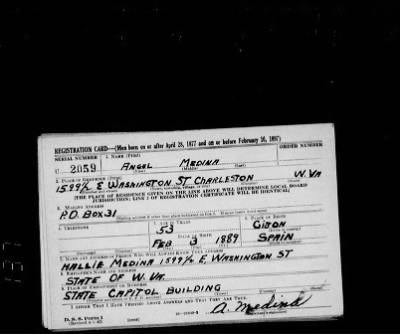 REGISTRATION CARD—(Men born on or after April 28, 1877 and on or before February 16, 1897)
SERIAL NUMBER 1. NAME (Print) ORDER NUMBER
U 2059 ANGEL MEDINA
(First) (Middle) (Last)
2. PLACE OF RESIDENCE (Print)
1599½ E WASHINGTON ST CHARLESTON W. VA
[THE PLACE OF RESIDENCE GIVEN ON THE LINE ABOVE WILL DETERMINE LOCAL BOARD
JURISDICTION; LINE 2 OF REGISTRATION CERTIFICATE WILL BE IDENTICAL]
3. MAILING ADDRESS
P.O. BOX 31
4. TELEPHONE 5. AGE IN YEARS 6. PLACE OF BIRTH
53 GIJON
DATE OF BIRTH
FEB 3 1889 SPAIN
7. NAME AND ADDRESS OF PERSON WHO WILL ALWAYS KNOW YOUR ADDRESS
HALLIE MEDINA 1599½ E. WASHINGTON ST
8. EMPLOYER'S NAME AND ADDRESS
STATE OF W. VA.
9. PLACE OF EMPLOYMENT OR BUSINESS
STATE CAPITOL BUILDING
I AFFIRM THAT I HAVE VERIFIED ABOVE ANSWERS AND THAT THEY ARE TRUE.
D. S. S. Form 1
A. Medina